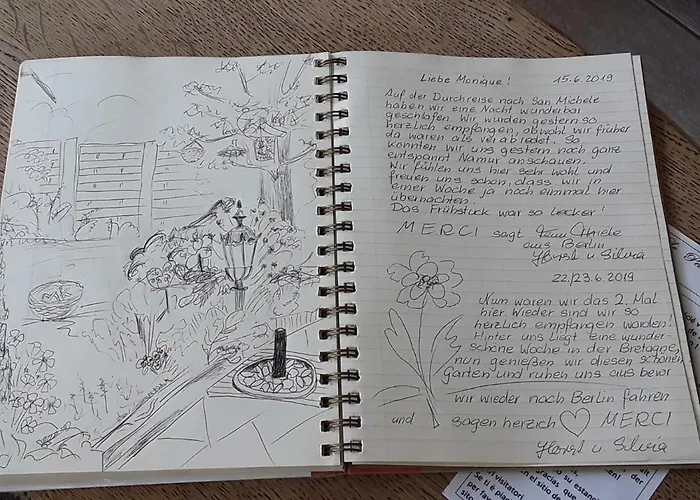 Liebe Monique! 15.6.2019
Auf der Durchreise nach San Michele
haben wir eine Nacht wunderbar
geschlafen. Wir wurden gestern so
herzlich empfangen, obwohl wir früher
da waren als verabredet. So
konnten wir uns gestern noch ganz
entspannt Namur anschauen.
Wir fühlen uns hier sehr wohl und
freuen uns schon, dass wir in
einer Woche ja noch einmal hier
übernachten.
Das Frühstück war so lecker!
MERCI sagt
aus Berlin
Horst u Silvia
22/23.6.2019
Nun waren wir das 2. Mal
hier. Wieder sind wir so
herzlich empfangen worden!
Hinter uns liegt eine wunder-
schöne Woche in der Bretagne,
nun genießen wir diesen schönen
Garten und ruhen uns aus bevor
wir wieder nach Berlin fahren
und sagen herzich MERCI
Horst u. Silvia